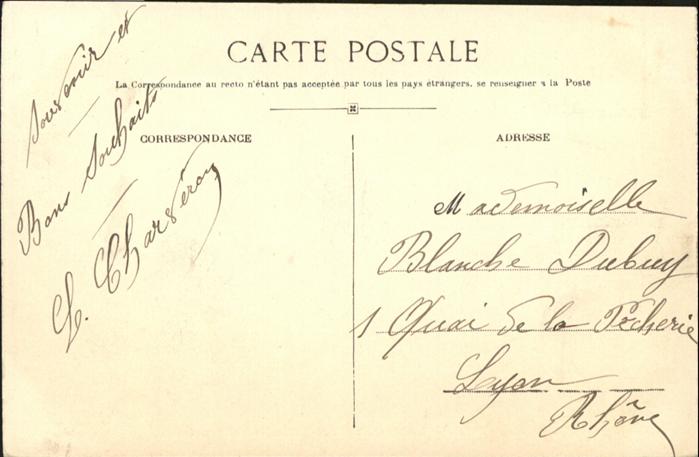 CARTE POSTALE
La Correspondance au recto n'étant pas acceptée par tous les pays étrangers, se renseigner à la Poste
CORRESPONDANCE
Souvenir et
Bons Souhaits
ADRESSE
Mademoiselle
Blanche Dubuy
1 Quai de la Pêcherie
Lyon
Rhône